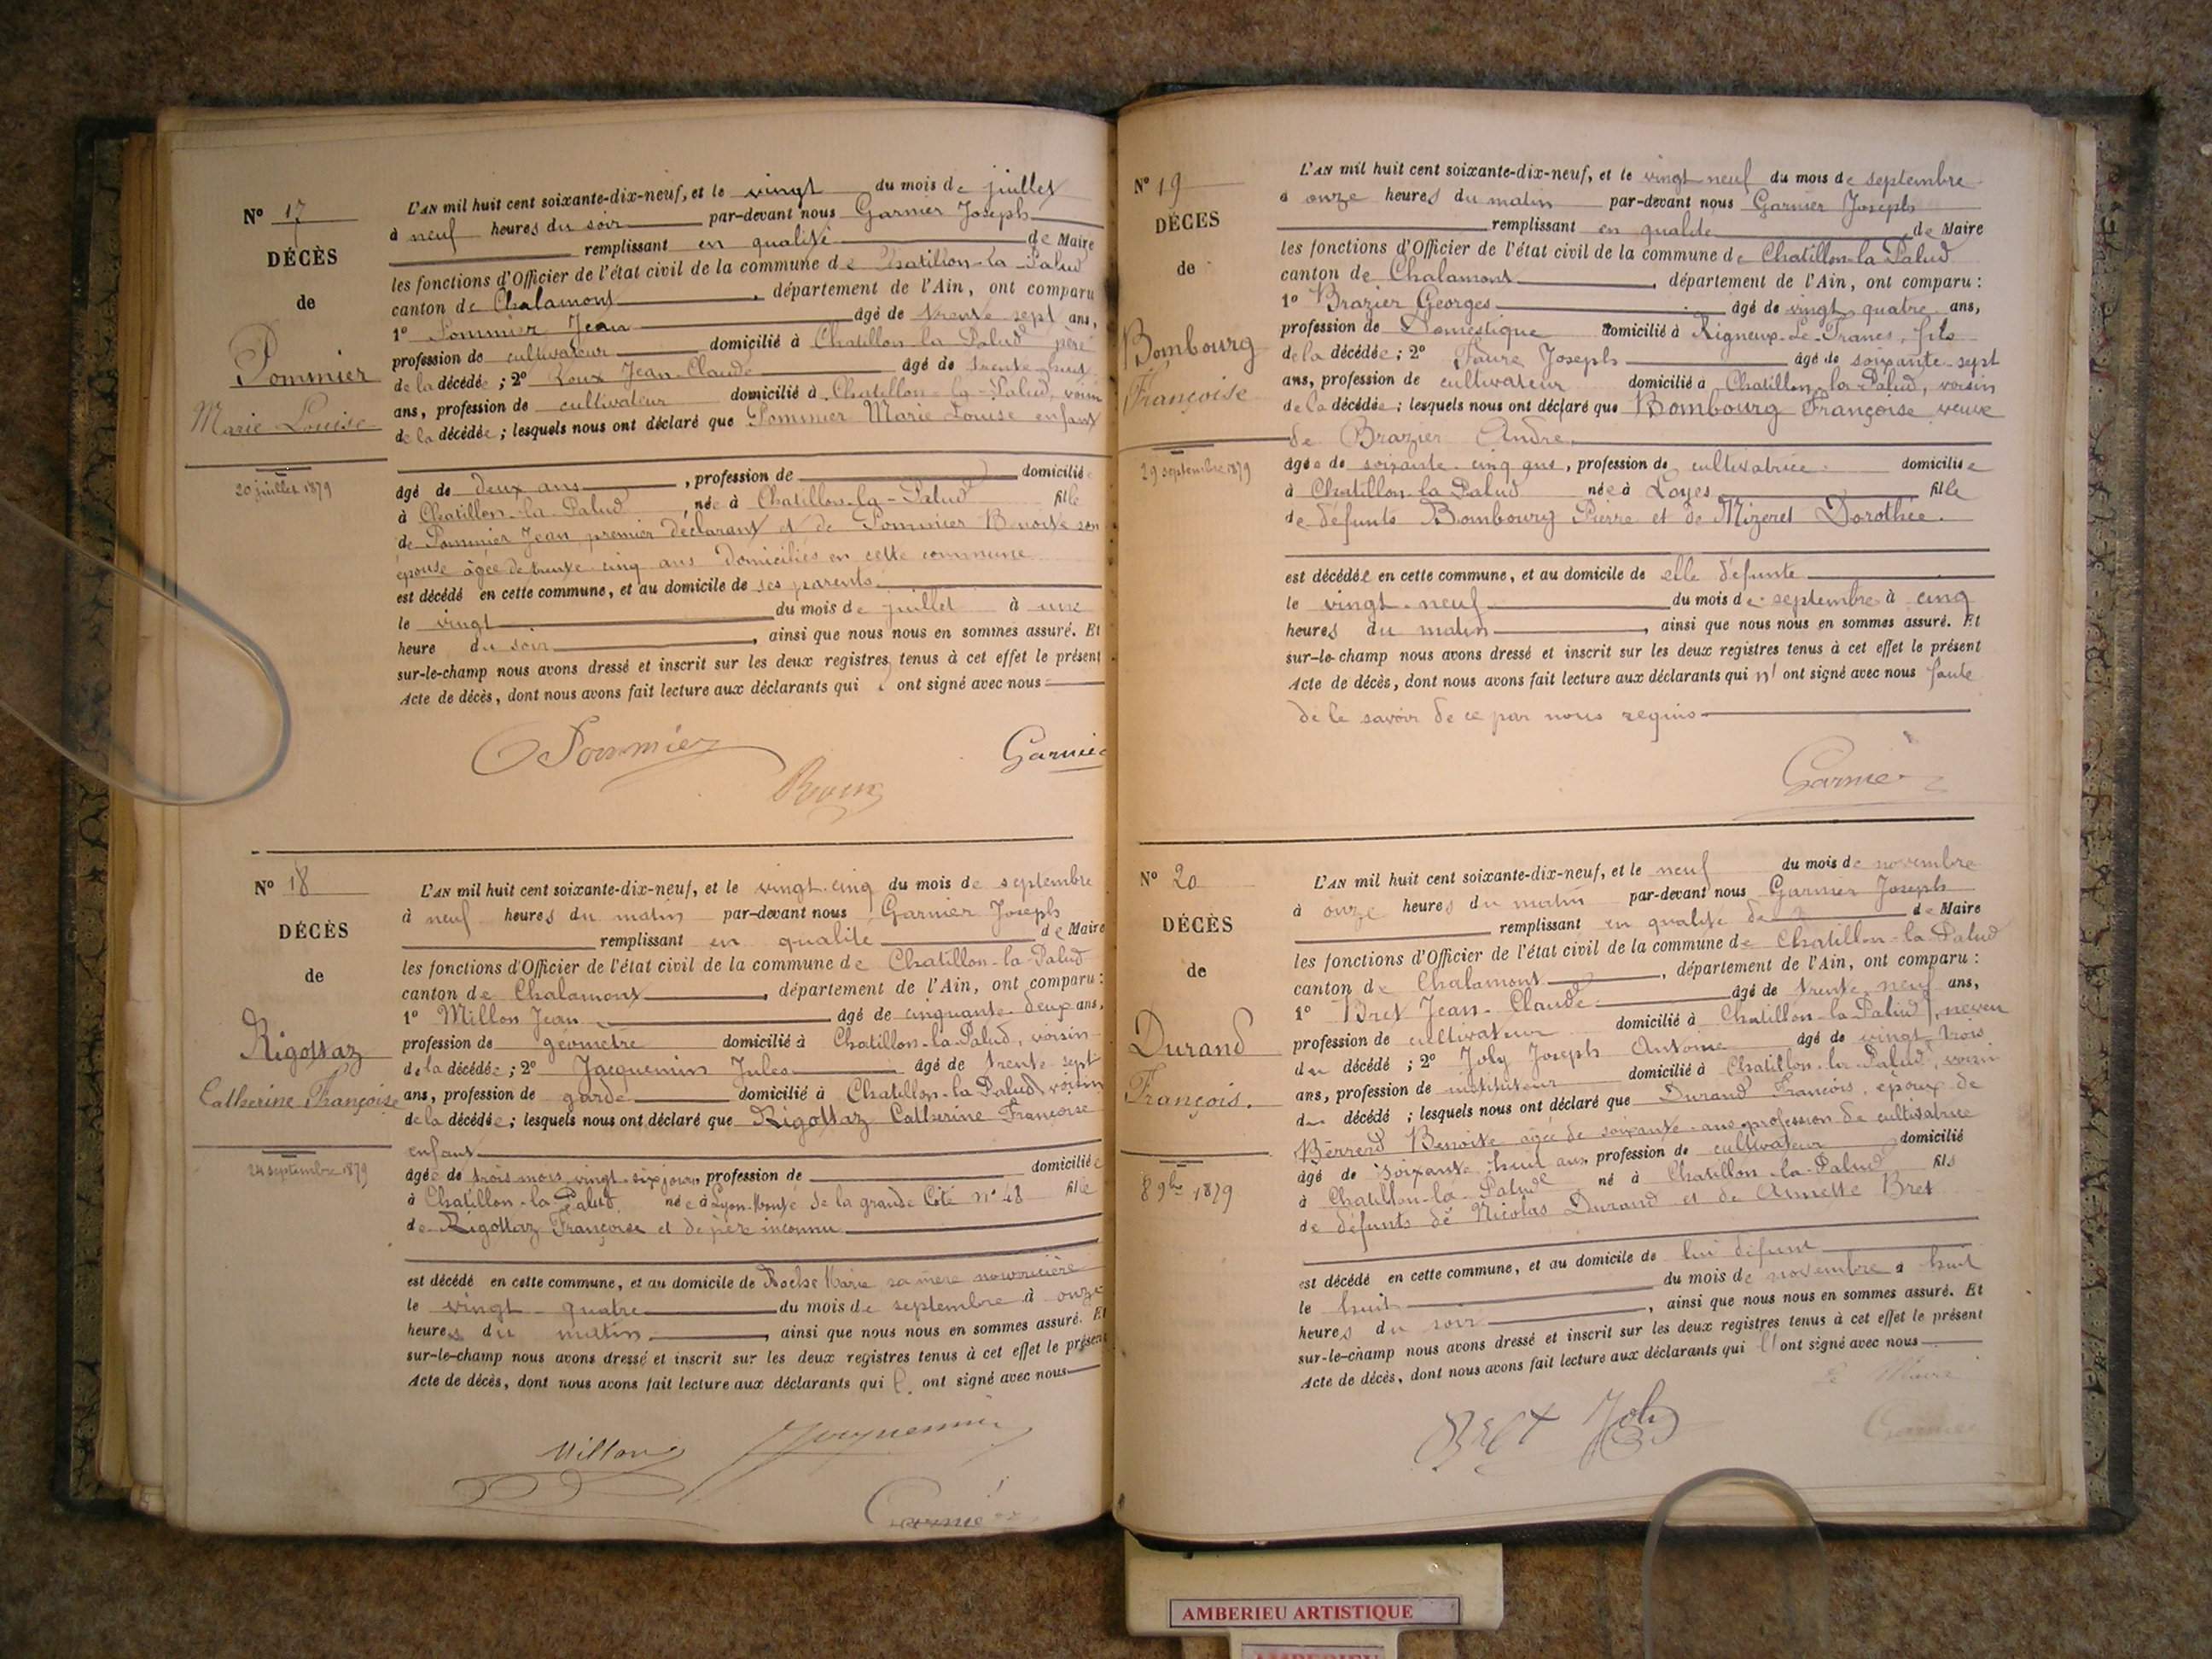 N° 17
DÉCÈS
de
Pommier
Marie Louise
20 juillet 1879
L'AN mil huit cent soixante-dix-neuf, et le vingt du mois de juillet
à neuf heures du soir par-devant nous Garnier Joseph
remplissant en qualité de Maire
les fonctions d'Officier de l'état civil de la commune de Chatillon-la-Palud
canton de Chalamont, département de l'Ain, ont comparu
1° Pommier Jean âgé de trente sept ans,
profession de cultivateur domicilié à Chatillon-la-Palud père
de la décédée ; 2° Roux Jean-Claude âgé de trente-huit
ans, profession de cultivateur domicilié à Chatillon-la-Palud, voisin
de la décédée ; lesquels nous ont déclaré que Pommier Marie Louise enfant
âgé de deux ans, profession de domicilié
à Chatillon-la-Palud, née à Chatillon-la-Palud fille
de Pommier Jean, premier déclarant et de Pommier Benoite son
épouse âgée de trente cinq ans domiciliés en cette commune
est décédé en cette commune, et au domicile de ses parents
le vingt du mois de juillet à une
heure du soir, ainsi que nous nous en sommes assuré. Et
sur-le-champ nous avons dressé et inscrit sur les deux registres tenus à cet effet le présent
Acte de décès, dont nous avons fait lecture aux déclarants qui ont signé avec nous
Pommier
Roux
Garnier
N° 18
DÉCÈS
de
Rigottaz
Catherine Françoise
24 septembre 1879
L'AN mil huit cent soixante-dix-neuf, et le vingt-cinq du mois de septembre
à neuf heures du matin par-devant nous Garnier Joseph
remplissant en qualité de Maire
les fonctions d'Officier de l'état civil de la commune de Chatillon-la-Palud
canton de Chalamont, département de l'Ain, ont comparu :
1° Millon Jean âgé de cinquante-deux ans,
profession de géomètre domicilié à Chatillon-la-Palud, voisin
de la décédée ; 2° Jacquemin Jules âgé de trente-sept
ans, profession de garde domicilié à Chatillon-la-Palud voisin
de la décédée ; lesquels nous ont déclaré que Rigottaz Catherine Françoise
enfant
âgée de trois mois vingt-six jours, profession de domiciliée
à Chatillon-la-Palud, née à Lyon Montée de la grande Côte n° 48 fille
de Rigottaz Françoise et de père inconnu
est décédé en cette commune, et au domicile de Roche Marie sa mère nourricière
le vingt-quatre du mois de septembre à onze
heures du matin, ainsi que nous nous en sommes assuré. Et
sur-le-champ nous avons dressé et inscrit sur les deux registres tenus à cet effet le présent
Acte de décès, dont nous avons fait lecture aux déclarants qui ont signé avec nous
Millon
Jacquemin
Garnier
N° 19
DÉCÈS
de
Bombourg
Françoise
29 septembre 1879
L'AN mil huit cent soixante-dix-neuf, et le vingt neuf du mois de septembre
à onze heures du matin par-devant nous Garnier Joseph
remplissant en qualité de Maire
les fonctions d'Officier de l'état civil de la commune de Chatillon-la-Palud
canton de Chalamont, département de l'Ain, ont comparu :
1° Brazier Georges âgé de vingt quatre ans,
profession de Domestique domicilié à Rigneux-Le-Franc, fils
de la décédée ; 2° Faure Joseph âgé de soixante-sept
ans, profession de cultivateur domicilié à Chatillon-la-Palud, voisin
de la décédée ; lesquels nous ont déclaré que Bombourg Françoise veuve
de Brazier André
âgée de soixante-cinq ans, profession de cultivatrice domiciliée
à Chatillon-la-Palud née à Loyes fille
de défunts Bombourg Pierre et de Mizeret Dorothée.
est décédée en cette commune, et au domicile de elle défunte
le vingt-neuf du mois de septembre à cinq
heures du matin, ainsi que nous nous en sommes assuré. Et
sur-le-champ nous avons dressé et inscrit sur les deux registres tenus à cet effet le présent
Acte de décès, dont nous avons fait lecture aux déclarants qui n'ont signé avec nous faute
de le savoir de ce par nous requis
Garnier
N° 20
DÉCÈS
de
Durand
François.
8 9bre 1879
L'AN mil huit cent soixante-dix-neuf, et le neuf du mois de novembre
à onze heures du matin par-devant nous Garnier Joseph
remplissant en qualité de de Maire
les fonctions d'Officier de l'état civil de la commune de Chatillon-la-Palud
canton de Chalamont, département de l'Ain, ont comparu :
1° Bret Jean-Claude âgé de trente-neuf ans,
profession de cultivateur domicilié à Chatillon-la-Palud, neveu
du décédé ; 2° Joly Joseph Antoine âgé de vingt-trois
ans, profession de instituteur domicilié à Chatillon-la-Palud, voisin
du décédé ; lesquels nous ont déclaré que Durand François, époux de
Berrerd Benoite âgée de soixante-ans profession de cultivatrice
âgé de soixante-huit ans, profession de cultivateur domicilié
à Chatillon-la-Palud né à Chatillon-la-Palud fils
de défunts de Nicolas Durand et de Annette Bret
est décédé en cette commune, et au domicile de lui défunt
le huit du mois de novembre à huit
heures du soir, ainsi que nous nous en sommes assuré. Et
sur-le-champ nous avons dressé et inscrit sur les deux registres tenus à cet effet le présent
Acte de décès, dont nous avons fait lecture aux déclarants qui l'ont signé avec nous
Le Maire
Bret Joly
Garnier
AMBERIEU ARTISTIQUE
AMBERIEU